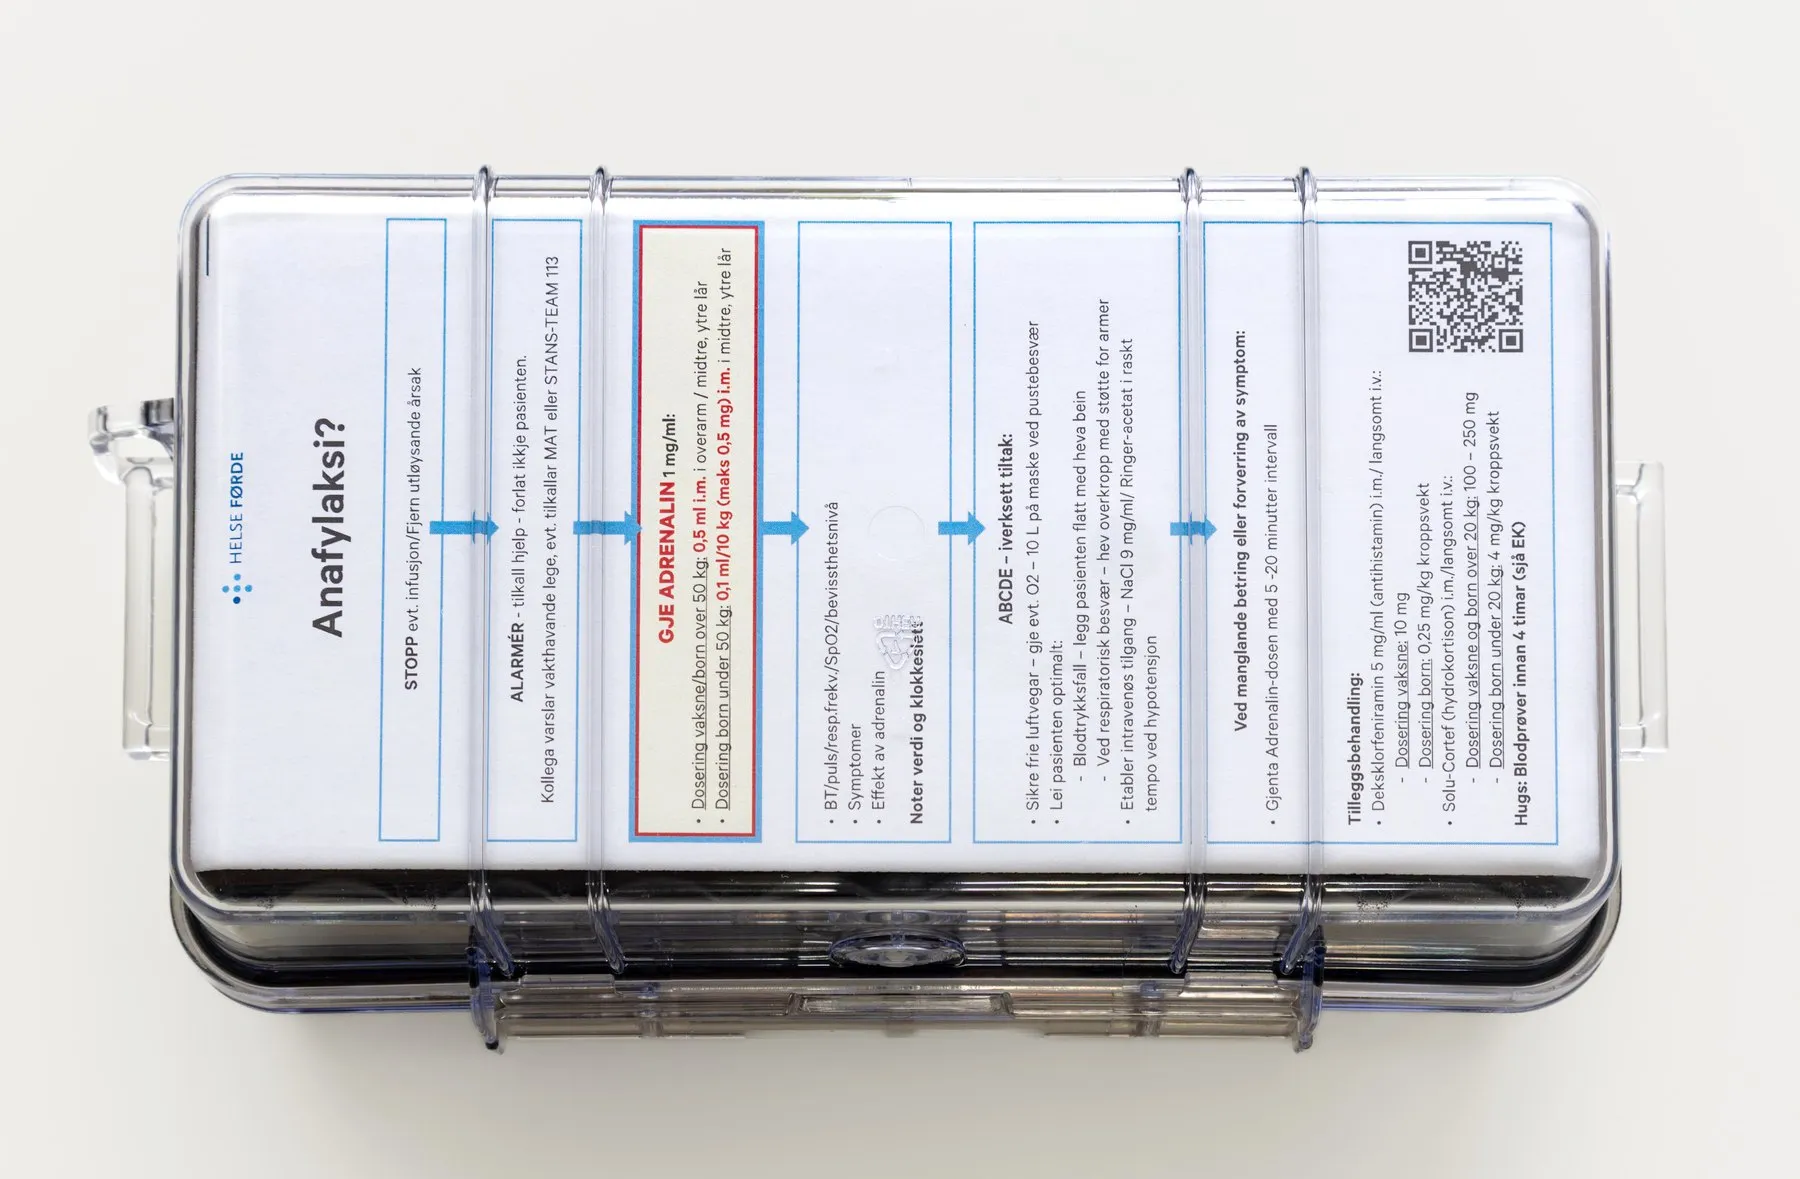 HELSE FØRDE
Anafylaksi?
STOPP evt. infusjon/Fjern utløysande årsak
ALARMÉR - tilkall hjelp - forlat ikkje pasienten.
Kollega varslar vakthavande lege, evt. tilkallar MAT eller STANS-TEAM 113
GJE ADRENALIN 1 mg/ml:
• Dosering vaksne/born over 50 kg: 0,5 ml i.m. i overarm / midtre, ytre lår
• Dosering born under 50 kg: 0,1 ml/10 kg (maks 0,5 mg) i.m. i midtre, ytre lår
• BT/puls/resp.frekv./SpO2/bevissthetsnivå
• Symptomer
• Effekt av adrenalin
Noter verdi og klokkeslett
ABCDE – iverksett tiltak:
• Sikre frie luftvegar – gje evt. O2 – 10 L på maske ved pustebesvær
• Lei pasienten optimalt:
- Blodtrykksfall – legg pasienten flatt med heva bein
- Ved respiratorisk besvær – hev overkropp med støtte for armer
• Etabler intravenøs tilgang – NaCl 9 mg/ml/ Ringer-acetat i raskt
tempo ved hypotensjon
Ved manglande betring eller forverring av symptom:
• Gjenta Adrenalin-dosen med 5 -20 minutter intervall
Tilleggsbehandling:
• Deksklorfeniramin 5 mg/ml (antihistamin) i.m./ langsomt i.v.:
- Dosering vaksne: 10 mg
- Dosering born: 0,25 mg/kg kroppsvekt
• Solu-Cortef (hydrokortison) i.m./langsomt i.v.:
- Dosering vaksne og born over 20 kg: 100 – 250 mg
- Dosering born under 20 kg: 4 mg/kg kroppsvekt
Hugs: Blodprøver innan 4 timar (sjå EK)